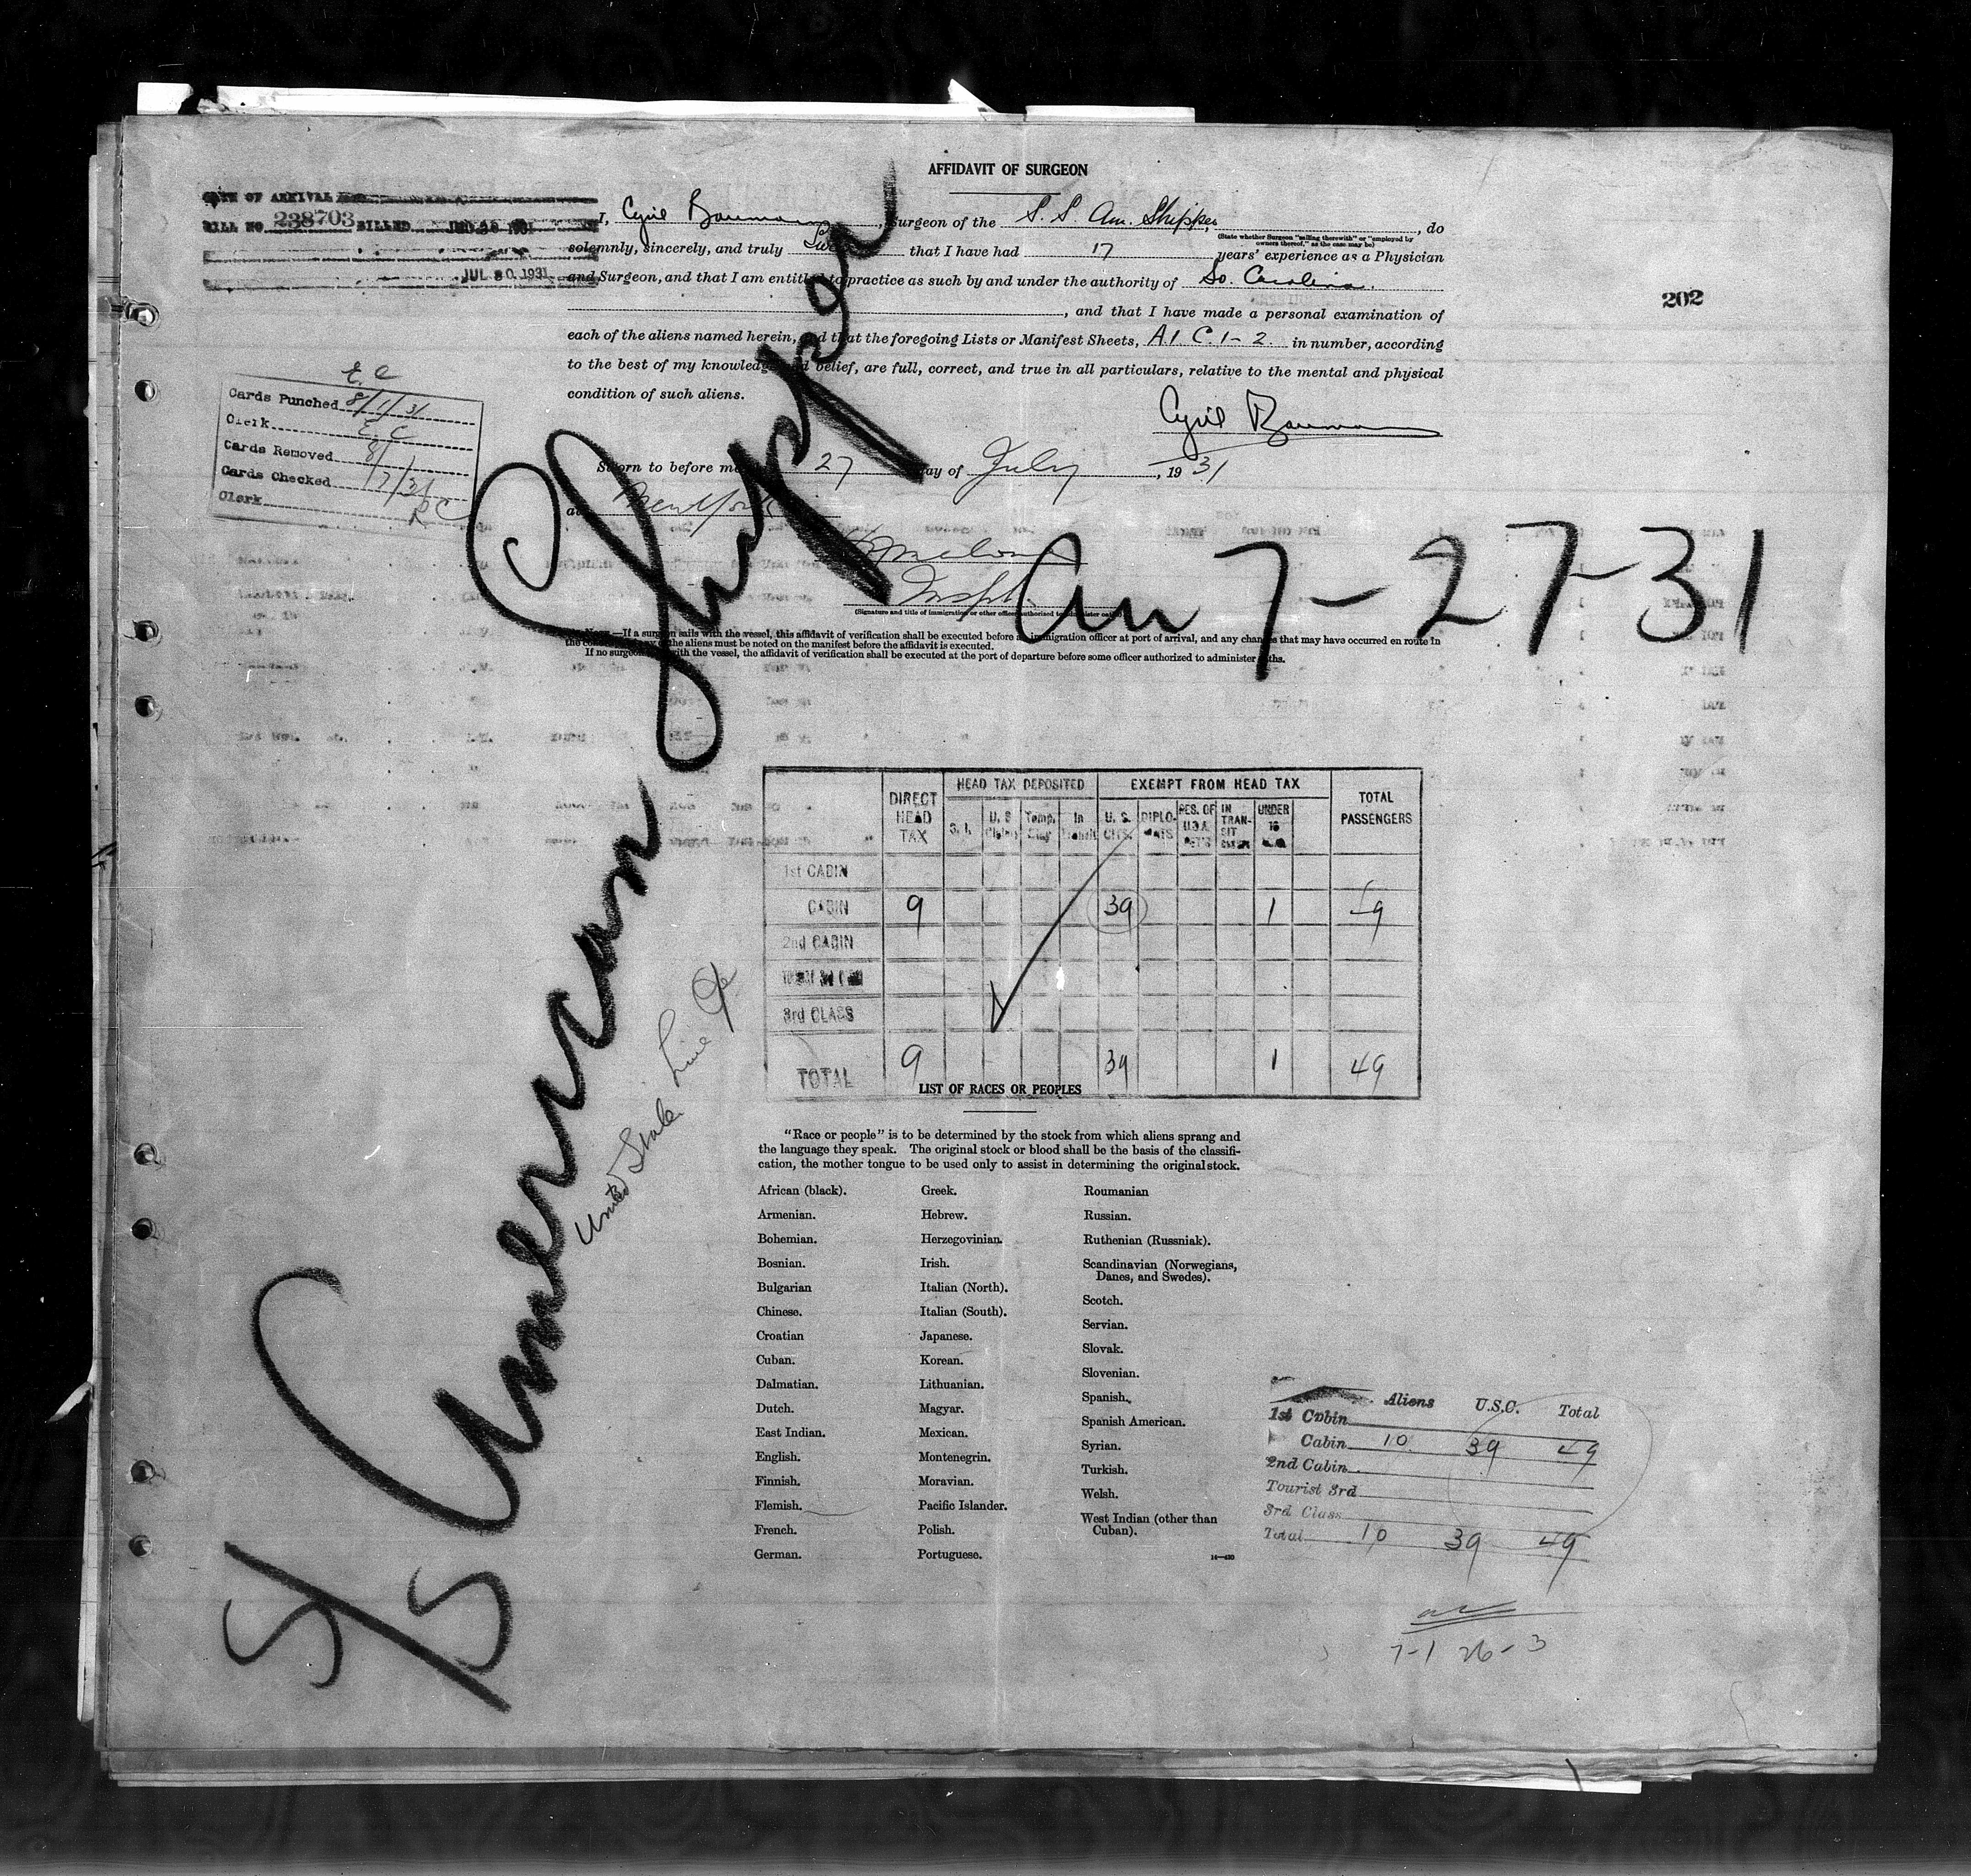 AFFIDAVIT OF SURGEON
DATE OF ARRIVAL
BILL NO. 238703 BILLED
JUL 30 1931
I, Cyril Baumann, Surgeon of the S. S. Am. Shipper, do
(State whether Surgeon "sailing therewith" or "employed by
owners thereof," as the case may be)
solemnly, sincerely, and truly that I have had 17 years' experience as a Physician
and Surgeon, and that I am entitled to practice as such by and under the authority of So. Carolina.
, and that I have made a personal examination of
each of the aliens named herein, and that the foregoing Lists or Manifest Sheets, A1 C.1-2 in number, according
to the best of my knowledge and belief, are full, correct, and true in all particulars, relative to the mental and physical
condition of such aliens.
Cyril Baumann
202
E.C
Cards Punched 8/1/31
Clerk E.C
Cards Removed 8/
Cards Checked 1/31
Clerk RC
Sworn to before me 27 day of July, 1931
at New York
Insptr.
(Signature and title of immigration or other officer authorized to administer oaths)
Note.—If a surgeon sails with the vessel, this affidavit of verification shall be executed before an immigration officer at port of arrival, and any changes that may have occurred en route in
the condition of the aliens must be noted on the manifest before the affidavit is executed.
If no surgeon sails with the vessel, the affidavit of verification shall be executed at the port of departure before some officer authorized to administer oaths.
S/S American Shipper
Arr 7-27-31
United States Line
DIRECT HEAD TAX
HEAD TAX DEPOSITED
EXEMPT FROM HEAD TAX
TOTAL PASSENGERS
S. I. U. S Citizen Temp. Stay In Transit U. S. CITS. DIPLOMATS RES. OF U.S.A. IN TRANSIT UNDER 16
1st CABIN
CABIN 9 39 1 49
2nd CABIN
3rd CLASS
TOTAL 9 39 1 49
LIST OF RACES OR PEOPLES
"Race or people" is to be determined by the stock from which aliens sprang and
the language they speak. The original stock or blood shall be the basis of the classifi-
cation, the mother tongue to be used only to assist in determining the original stock.
African (black).
Armenian.
Bohemian.
Bosnian.
Bulgarian
Chinese.
Croatian
Cuban.
Dalmatian.
Dutch.
East Indian.
English.
Finnish.
Flemish.
French.
German.
Greek.
Hebrew.
Herzegovinian.
Irish.
Italian (North).
Italian (South).
Japanese.
Korean.
Lithuanian.
Magyar.
Mexican.
Montenegrin.
Moravian.
Pacific Islander.
Polish.
Portuguese.
Roumanian
Russian.
Ruthenian (Russniak).
Scandinavian (Norwegians,
Danes, and Swedes).
Scotch.
Servian.
Slovak.
Slovenian.
Spanish.
Spanish American.
Syrian.
Turkish.
Welsh.
West Indian (other than
Cuban).
Aliens U.S.C. Total
1st Cabin
Cabin 10 39 49
2nd Cabin
Tourist 3rd
3rd Class
Total 10 39 49
7-1 26-3